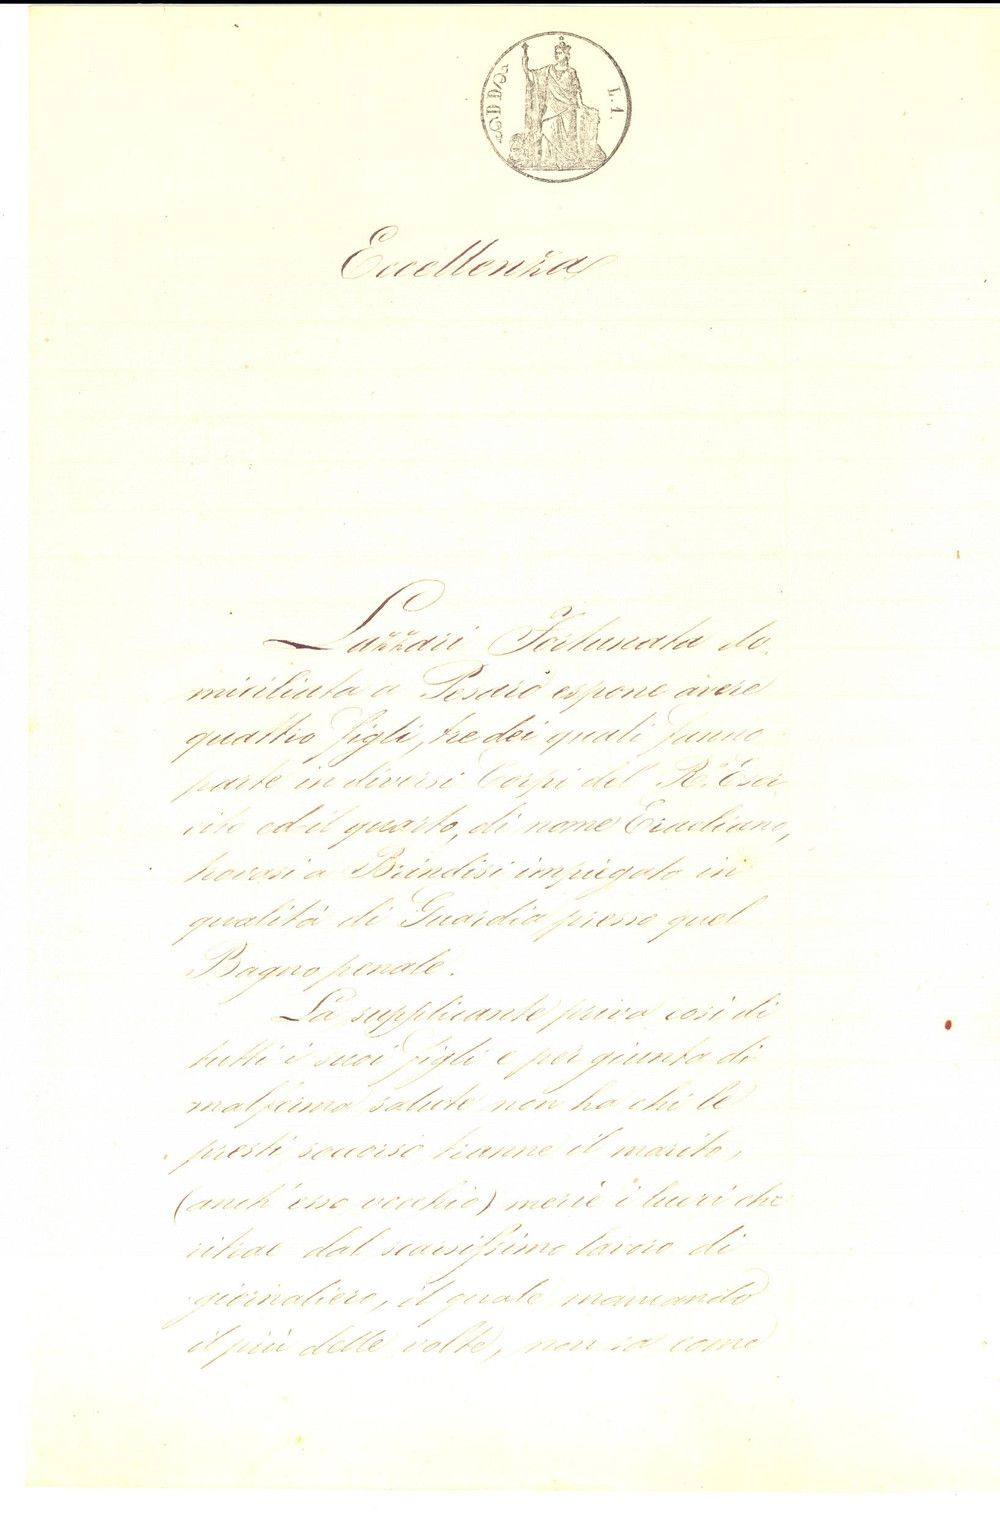 L. 1.
Eccellenza
Lazzari Fortunata do-
miciliata a Pesaro espone avere
quattro figli, tre dei quali fanno
parte in diversi Corpi del R.° Eser
cito ed il quarto, di nome Eracliano,
trovasi a Brindisi impiegato in
qualità di Guardia presso quel
Bagno penale.
La supplicante priva così di
tutti i suoi figli e per giunta di
malferma salute non ha chi le
presti soccorso tranne il marito,
(anch'esso vecchio) mercè i lucri che
ritrae dal scarsissimo lavoro di
giornaliero, il quale mancando
il più delle volte, non sa come